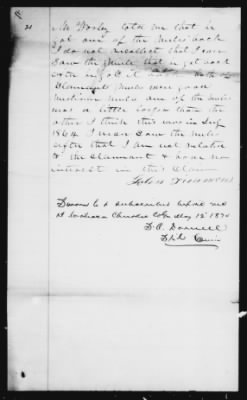 21
Mr Worley told me that he
got one of the mules back
I do not recollect that I ever
saw the mule that he got back
with in it both of
Claimants mules were good
medium mules one of the mules
was a little larger than the
other I think this was in Aug
1864. I never saw the mule
after that I am not related
to the claimant & have no
interest in this claim
Sworn to & subscribed before me
at Cherokee Co Ga May 12 1874